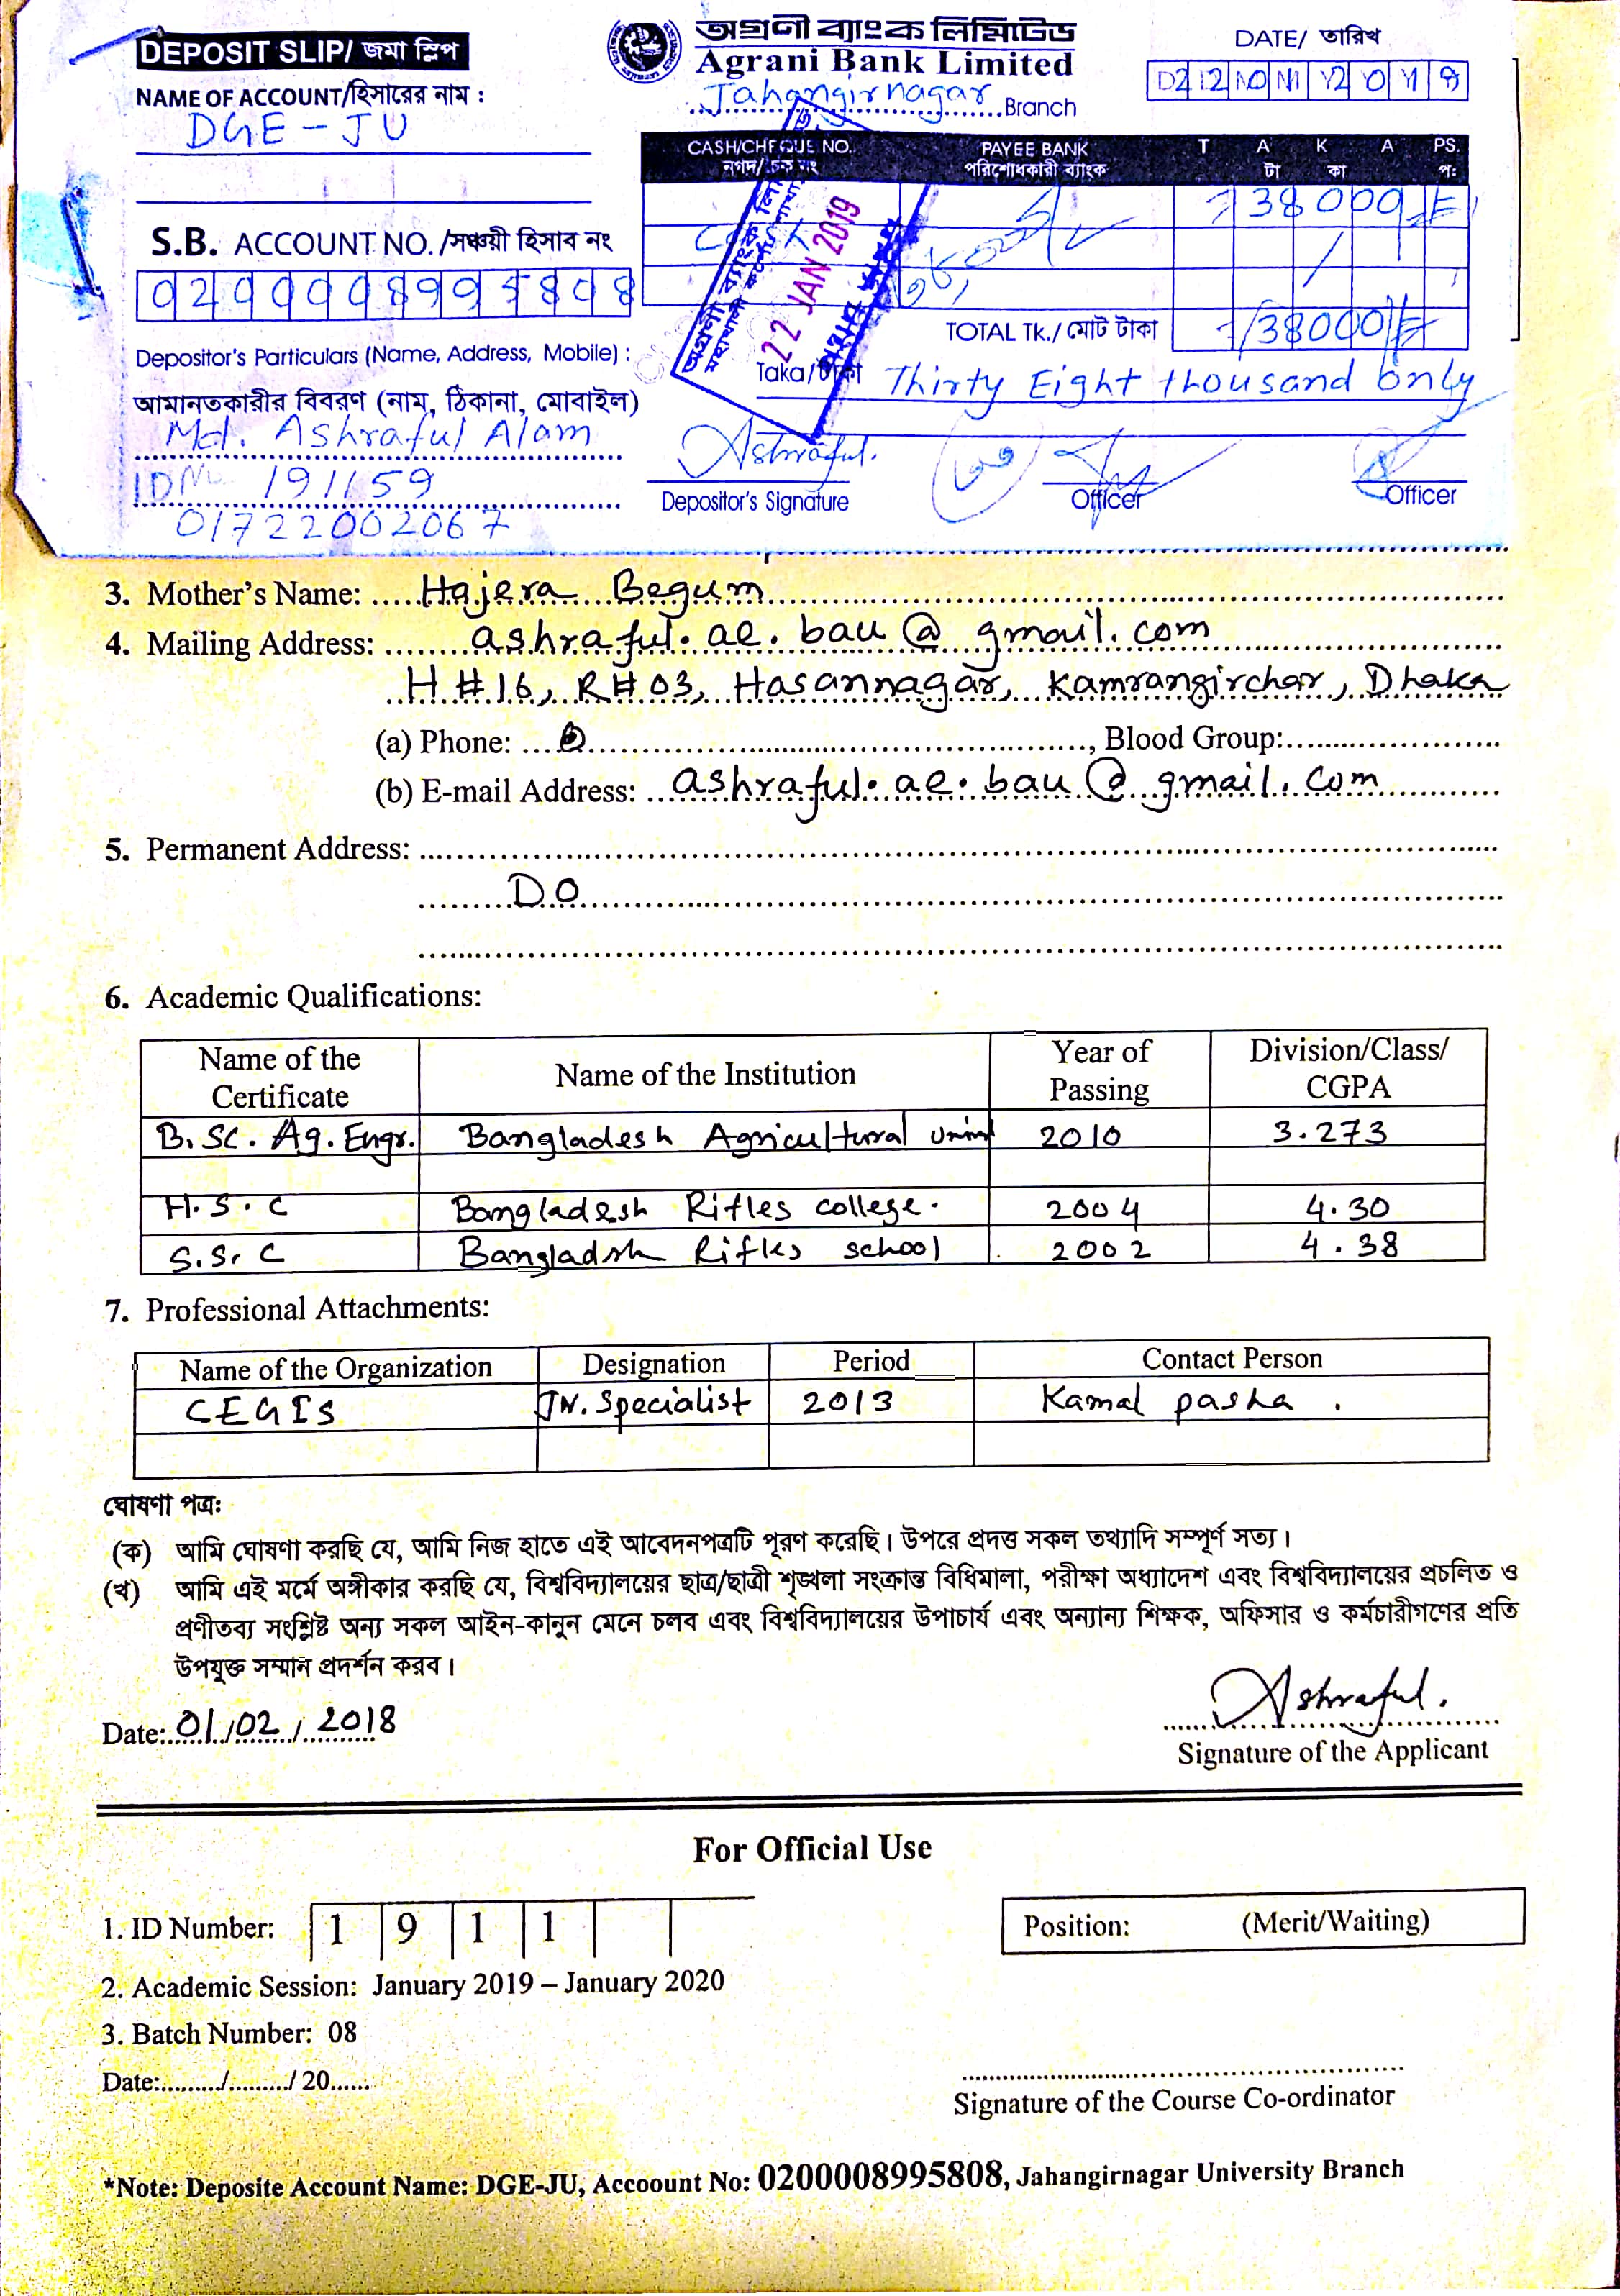 DEPOSIT SLIP/ জমা স্লিপ
অগ্রণী ব্যাংক লিমিটেড
Agrani Bank Limited
Jahangirnagar Branch
DATE/ তারিখ
22 01 2019
NAME OF ACCOUNT/হিসাবের নাম :
DGE - JU
CASH/CHEQUE NO. PAYEE BANK T A K A PS.
নগদ/চেক নং পরিশোধকারী ব্যাংক টা কা প:
38000/=
Cash
S.B. ACCOUNT NO./সঞ্চয়ী হিসাব নং
0200008995808
22 JAN 2019
TOTAL TK./মোট টাকা 38000/=
Depositor's Particulars (Name, Address, Mobile) :
Taka/টাকা Thirty Eight thousand only
আমানতকারীর বিবরণ (নাম, ঠিকানা, মোবাইল)
Md. Ashraful Alam
ID No. 191159
01722002067
Ashraful.
Depositor's Signature Officer Officer
3. Mother's Name: Hajera Begum
4. Mailing Address: ashraful.ae.bau@gmail.com
H#16, R#03, Hasannagar, Kamrangirchar, Dhaka
(a) Phone: , Blood Group:
(b) E-mail Address: ashraful.ae.bau@gmail.com
5. Permanent Address:
DO
6. Academic Qualifications:
Name of the Certificate Name of the Institution Year of Passing Division/Class/ CGPA
B.Sc. Ag. Engr. Bangladesh Agricultural 2010 3.273
H.S.C Bangladesh Rifles college. 2004 4.30
S.S.C Bangladsh Rifles school 2002 4.38
7. Professional Attachments:
Name of the Organization Designation Period Contact Person
CEGIS JN. Specialist 2013 Kamal pasha.
ঘোষণা পত্র:
(ক) আমি ঘোষণা করছি যে, আমি নিজ হাতে এই আবেদনপত্রটি পূরণ করেছি। উপরে প্রদত্ত সকল তথ্যাদি সম্পূর্ণ সত্য।
(খ) আমি এই মর্মে অঙ্গীকার করছি যে, বিশ্ববিদ্যালয়ের ছাত্র/ছাত্রী শৃঙ্খলা সংক্রান্ত বিধিমালা, পরীক্ষা অধ্যাদেশ এবং বিশ্ববিদ্যালয়ের প্রচলিত ও
প্রণীতব্য সংশ্লিষ্ট অন্য সকল আইন-কানুন মেনে চলব এবং বিশ্ববিদ্যালয়ের উপাচার্য এবং অন্যান্য শিক্ষক, অফিসার ও কর্মচারীগণের প্রতি
উপযুক্ত সম্মান প্রদর্শন করব।
Date: 01/02/2018
Ashraful.
Signature of the Applicant
For Official Use
1. ID Number: 1 9 1 1
Position: (Merit/Waiting)
2. Academic Session: January 2019 – January 2020
3. Batch Number: 08
Date:........./........./ 20......
Signature of the Course Co-ordinator
*Note: Deposite Account Name: DGE-JU, Accoount No: 0200008995808, Jahangirnagar University Branch